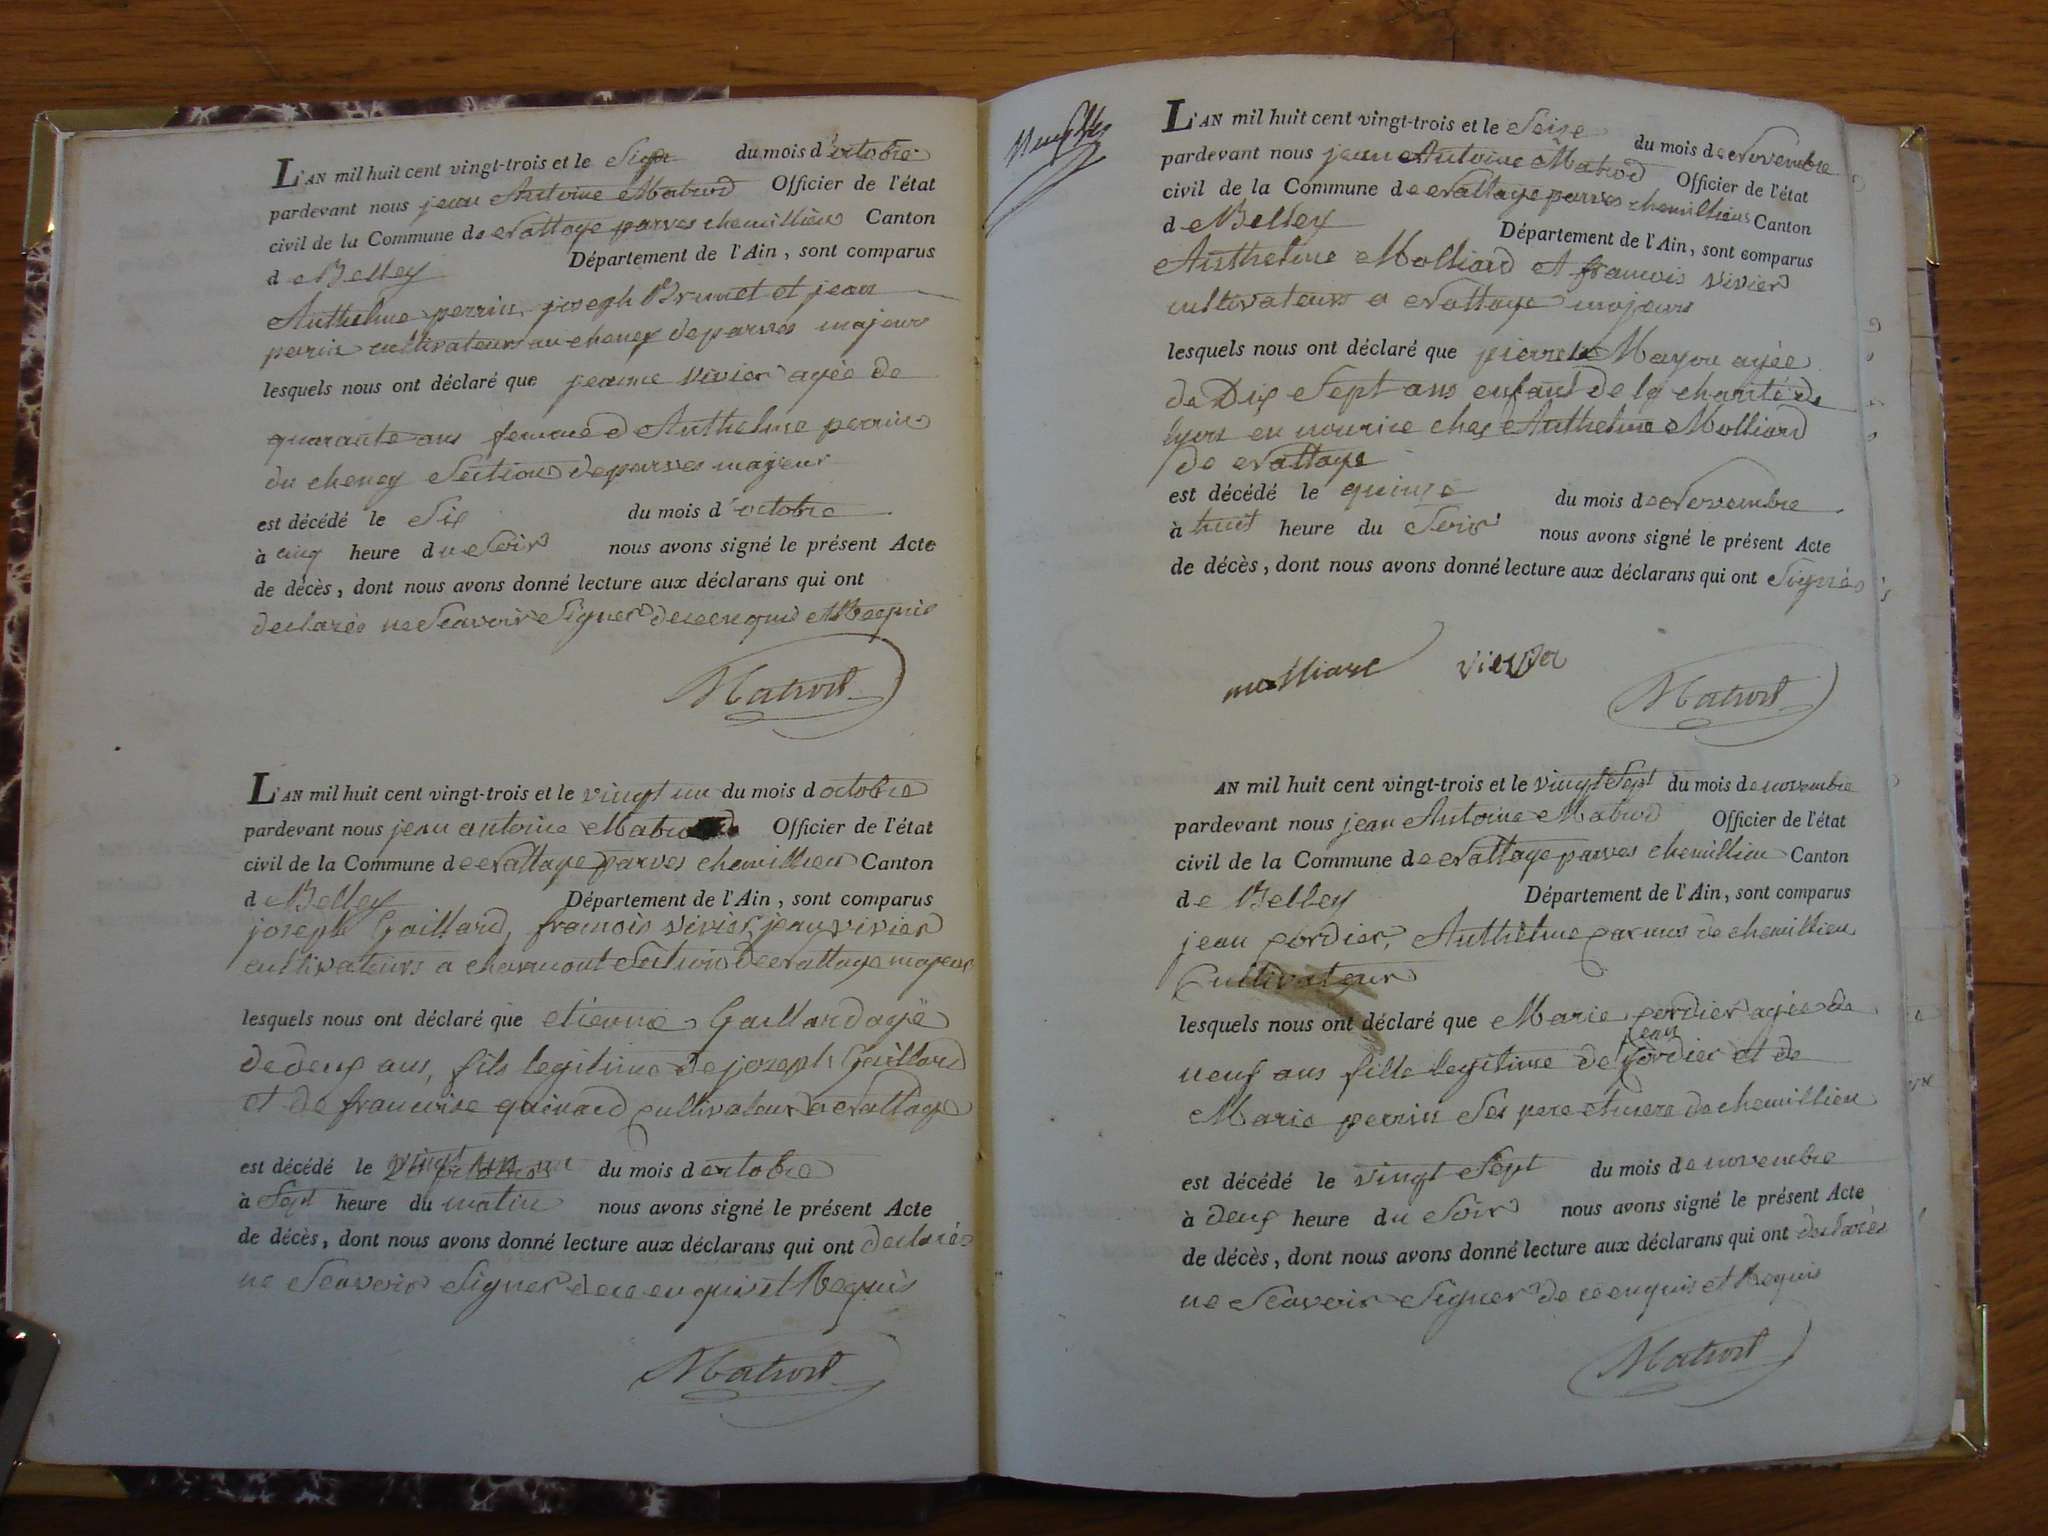 L'AN mil huit cent vingt-trois et le Six du mois d'octobre
pardevant nous jean Antoine Matrod Officier de l'état
civil de la Commune de nattage parves chemillieu Canton
de Belley Département de l'Ain, sont comparus
Anthelme perrin, joseph Brunet et jean
perrin cultivateurs au cheney de parves majeurs
lesquels nous ont déclaré que jeanne vivier agée de
quarante ans femme d Anthelme perrin
du cheney Section de parves majeur
est décédé le Six du mois d'octobre
à cinq heure du Soir nous avons signé le présent Acte
de décès, dont nous avons donné lecture aux déclarans qui ont
declarés ne Scavoir Signer de ce enquis et Requis
Matrod
L'AN mil huit cent vingt-trois et le vingt un du mois d octobre
pardevant nous jean antoine Matrod Officier de l'état
civil de la Commune de nattage parves chemillieu Canton
de Belley Département de l'Ain, sont comparus
joseph Gaillard, francois vivier, jean vivier
cultivateurs a charmont Section de nattage majeurs
lesquels nous ont déclaré que etienne Gaillard agé
de deux ans, fils legitime de joseph Gaillard
et de francoise quinard cultivateur a nattage
est décédé le vingt un du mois d octobre
à Sept heure du matin nous avons signé le présent Acte
de décès, dont nous avons donné lecture aux déclarans qui ont declarés
ne Scavoir Signer de ce enquis et Requis
Matrod
L'AN mil huit cent vingt-trois et le Seize du mois de novembre
pardevant nous jean Antoine Matrod Officier de l'état
civil de la Commune de nattage parves chemillieu Canton
de Belley Département de l'Ain, sont comparus
Anthelme Molliard et francois vivier
cultivateurs a nattage majeurs
lesquels nous ont déclaré que pierre Mayou agée
de Dix Sept ans enfant de la charité de
lyon en nourice chez Anthelme Molliard
de nattage
est décédé le quinze du mois de novembre
à huit heure du Soir nous avons signé le présent Acte
de décès, dont nous avons donné lecture aux déclarans qui ont Signés
molliard vivier
Matrod
AN mil huit cent vingt-trois et le vingt Sept du mois de novembre
pardevant nous jean Antoine Matrod Officier de l'état
civil de la Commune de nattage parves chemillieu Canton
de Belley Département de l'Ain, sont comparus
jean cordier, Anthelme de chemillieu
Cultivateur
lesquels nous ont déclaré que Marie cordier agée de
neuf ans fille legitime de jean Cordier et de
Marie perrin Ses pere et mere de chemillieu
est décédé le vingt Sept du mois de novembre
à deux heure du Soir nous avons signé le présent Acte
de décès, dont nous avons donné lecture aux déclarans qui ont declarés
ne Scavoir Signer de ce enquis et Requis
Matrod